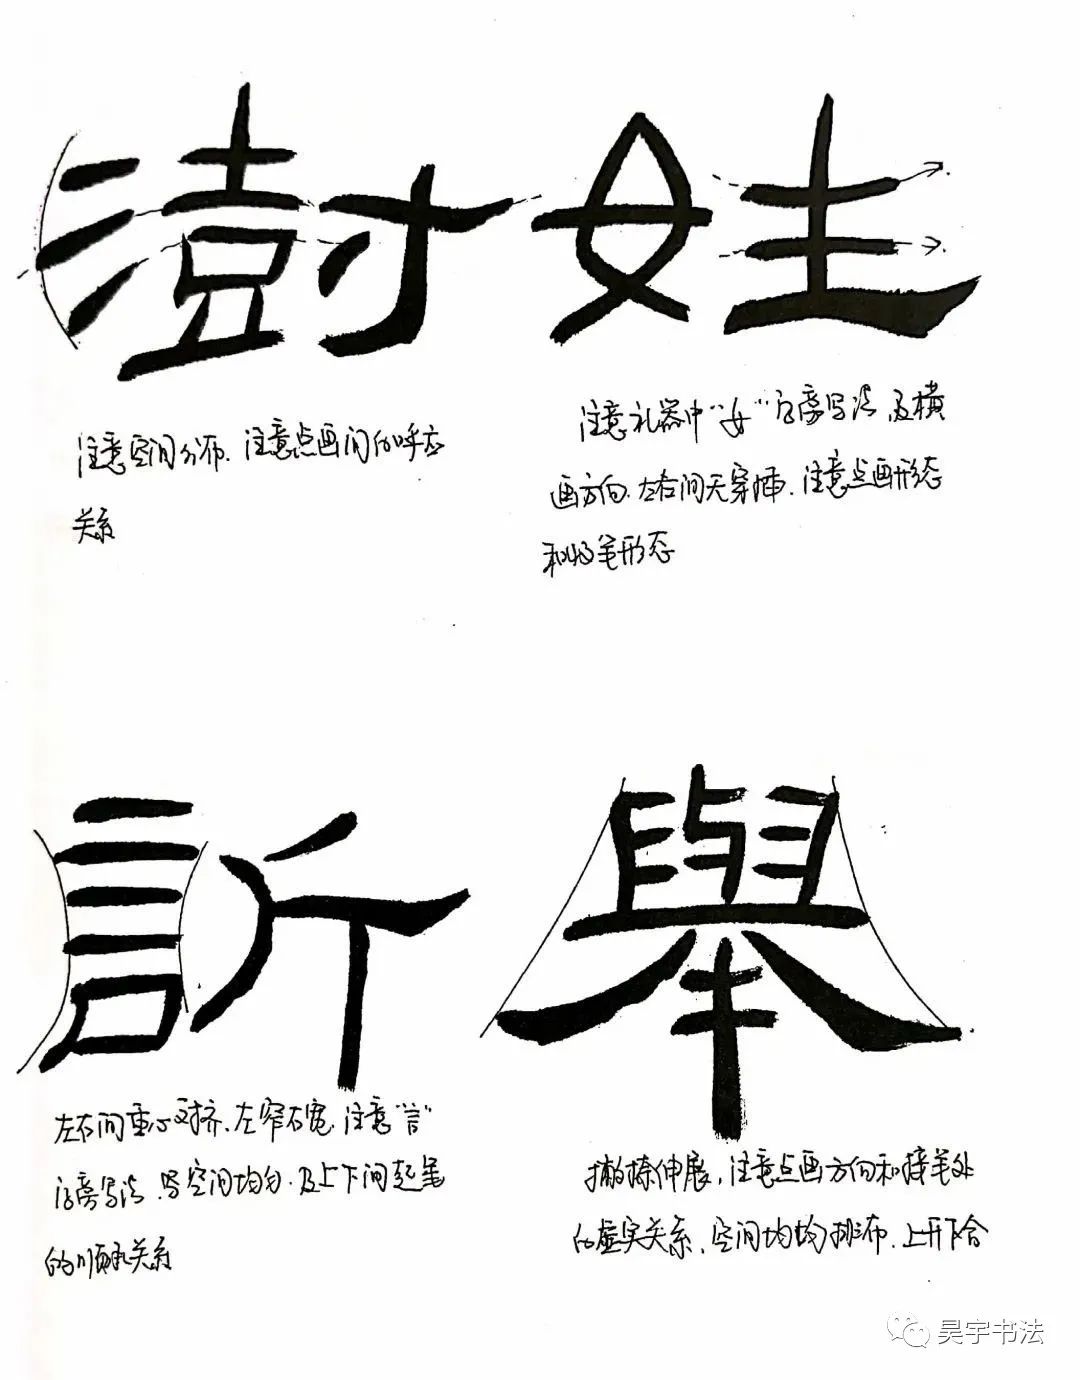 澍 姓
注意空间分布、注意点画间的呼应
关系
注意礼器中“女”字旁写法,及横
画方向、左右间无穿插、注意点画形态
和收笔形态
訢 舉
左右间重心对齐、左窄右宽、注意“言”
字旁写法、写空间均匀、及上下间起笔
的顺承关系
撇捺伸展,注意点画方向和接笔处
的虚实关系、空间均匀排布、上开下合
昊宇书法